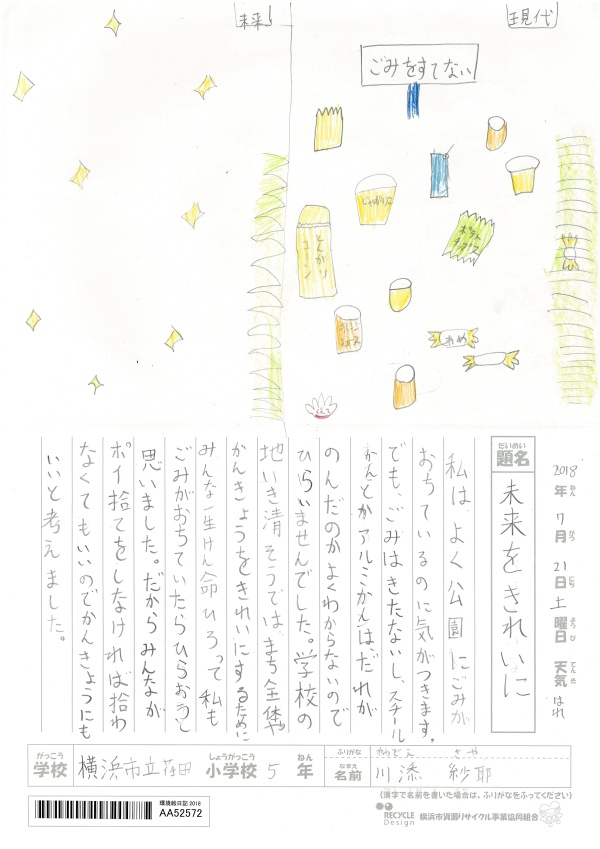 未来!
現代
ごみをすてない
じゃがりこ
ポテト
とんがり
コーン
あめ
2018年ねん 7月がつ 21日にち 土曜日ようび 天気てんき はれ
だいめい
題名
未来をきれいに
私はよく公園にごみが
おちているのに気がつきます。
でも、ごみはきたないし、スチール
かんとかアルミかんは、だれが
のんだのかよくわからないので
ひらいませんでした。学校の
地いき清そうでは、まち全体や
かんきょうをきれいにするために
みんな一生けん命ひろって私も
ごみがおちていたらひらおうと
思いました。だからみんなが
ポイ捨てをしなければ拾わ
なくてもいいのでかんきょうにも
いいと考えました。
がっこう
学校
横浜市立荏田
しょうがっこう
小学校
5
ねん
年
ふりがな
かわぞえ さや
なまえ
名前
川添 紗耶
(漢字で名前を書いた場合は、ふりがなをふってください)
環境絵日記2018
AA52572
RECYCLE
Design
横浜市資源リサイクル事業協同組合